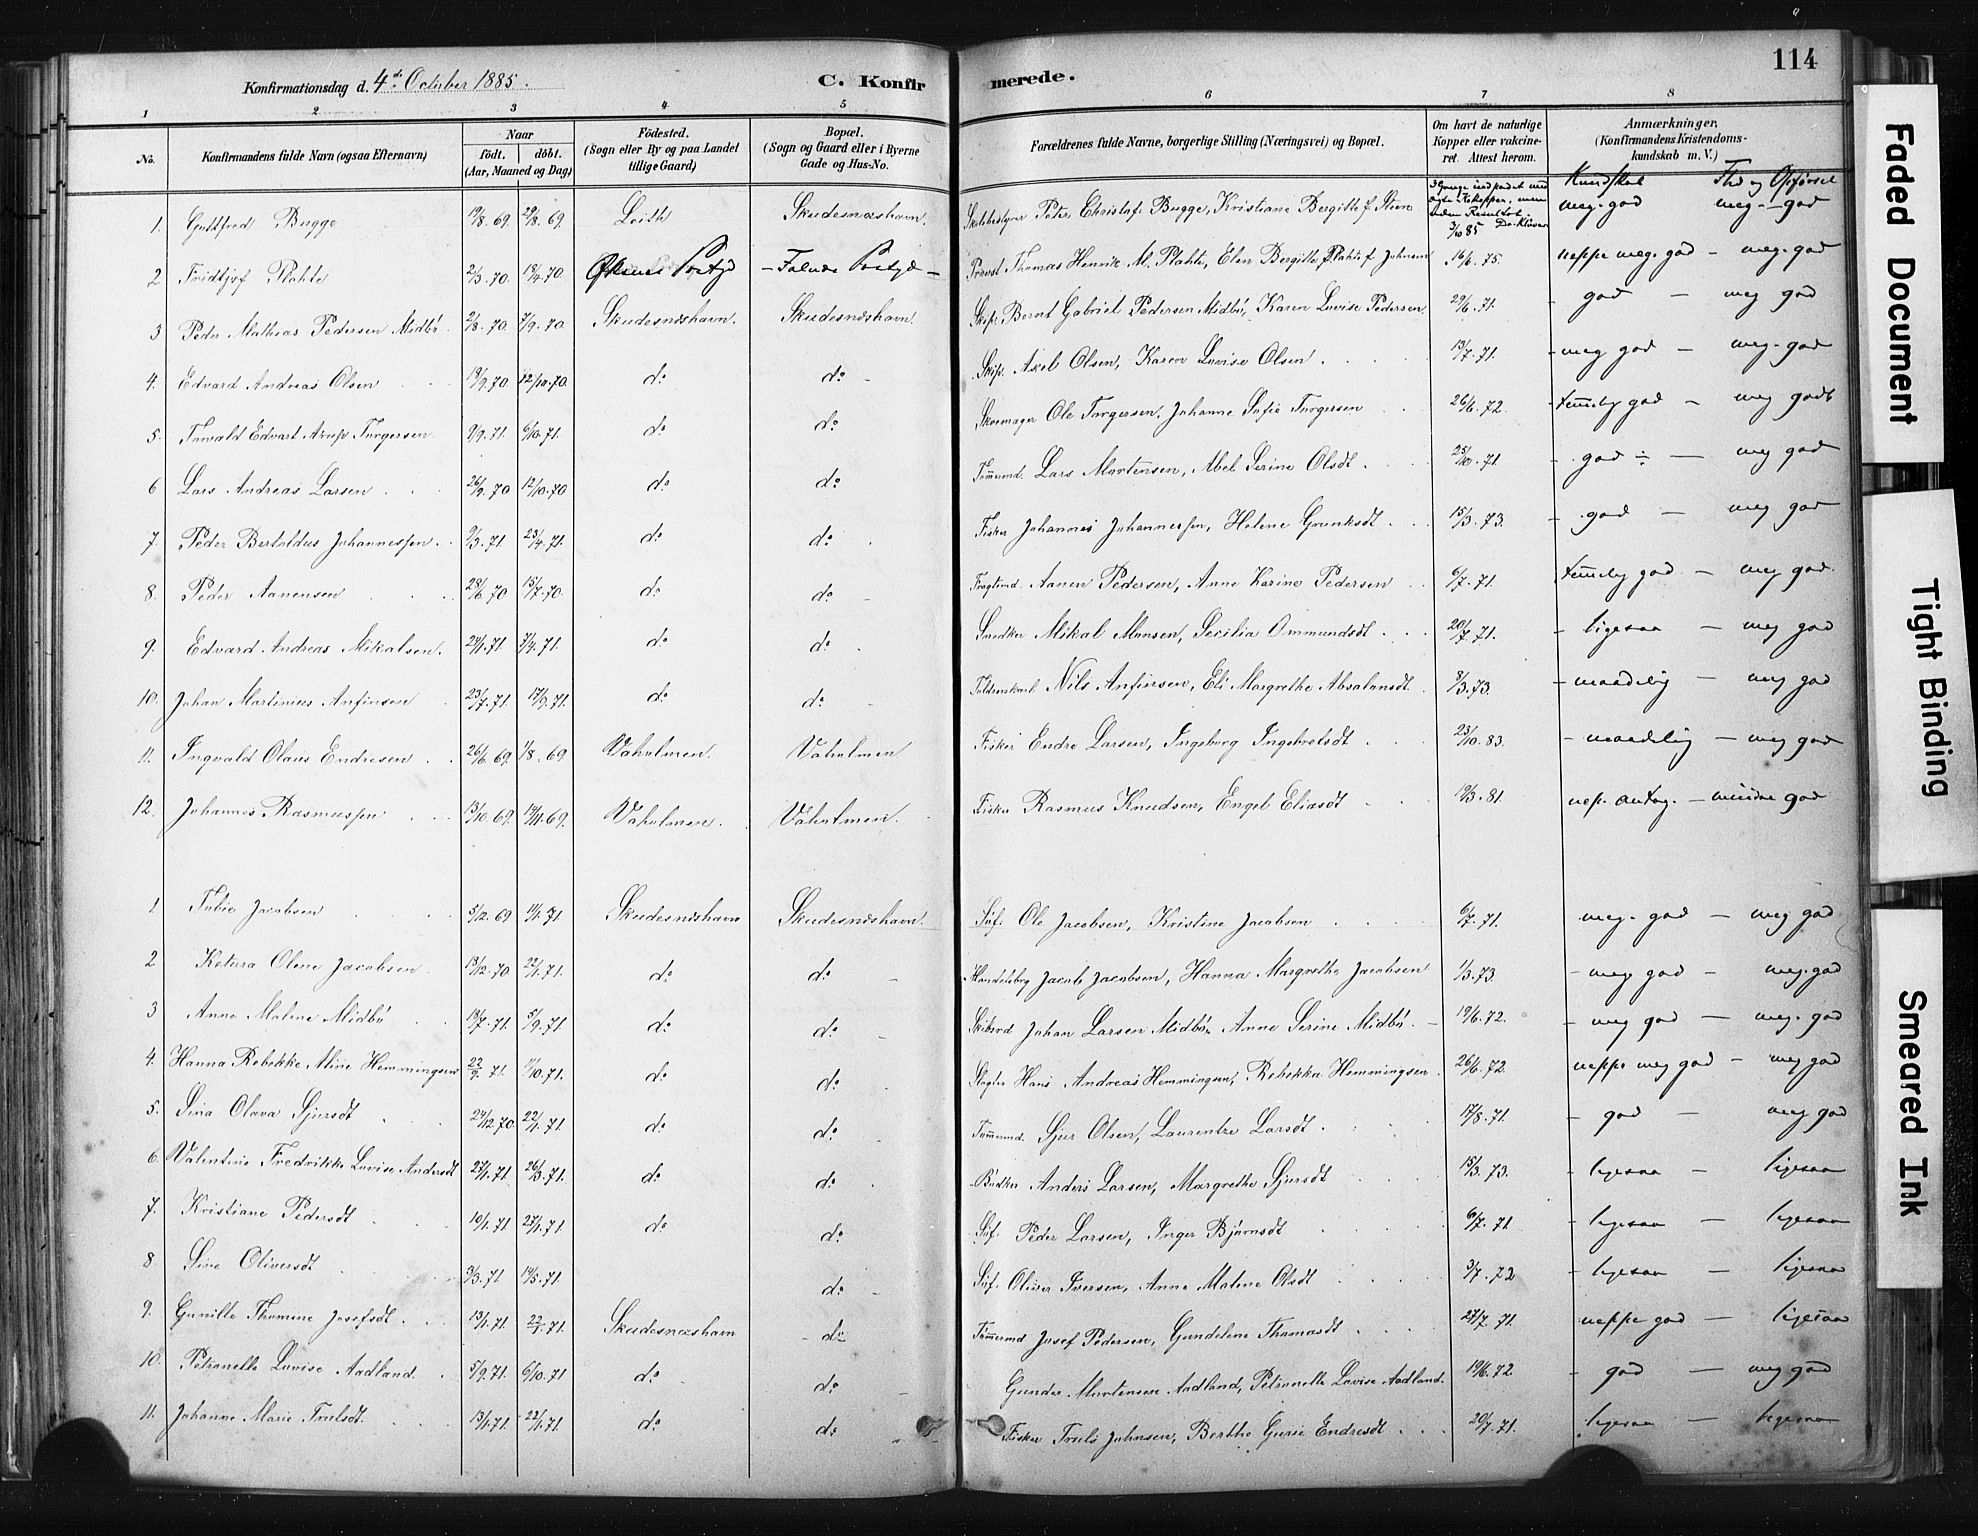 114
Konfirmationsdag d. 4de October 1885.
C. Konfirmerede.
1 2 3 4 5 6 7 8
No.
Konfirmandens fulde Navn (ogsaa Efternavn)
Naar
födt. döbt.
(Aar, Maaned og Dag)
Födested.
(Sogn eller By og paa Landet
tillige Gaard)
Bopæl.
(Sogn og Gaard eller i Byerne
Gade og Hus-No.
Forældrenes fulde Navne, borgerlige Stilling (Næringsvei) og Bopæl.
Om havt de naturlige
Kopper eller vakcine-
ret. Attest herom.
Anmærkninger.
(Konfirmandens Kristendoms-
kundskab m. V.)
Kundskab Flid og Opförsel
1. Gottfred Bugge 19/8.69 29/8.69 Leith Skudesnæshavn. Skolebestyrer Peter Christof. Bugge, Kristiane Bergitte f. Steen 3/10 85 meg. god meg. god
2 Fridtjof Plahte 2/3.70 18/4.70 Provst Thomas Henrik M. Plahte, Elen Bergitte Plahte f Johnsen 16/6.75. neppe meg. god - meg. god
3 Peder Mathias Pedersen Midbö 2/8.70 7/9.70 Skudesnæshavn. Skudesnæshavn. Skip. Bernt Gabriel Pedersen Midbö, Karen Lovise Pedersen 29/6.71. - god - meg god
4. Edvard Andreas Olsen 18/9.70 12/10.70 do do Skip. Axel Olsen, Karen Lovise Olsen 13/7.71. - meg god - meg. god
5. Torvald Edvart Arup Torgersen 9/9.71. 6/10.71. do do Skomager Ole Torgersen, Johanne Sofie Torgersen 26/6.72. - temmelig god - meg godt
6 Lars Andreas Larsen 26/9.70 12/10.70 do do Tömermd. Lars Mortensen, Abel Serine Olsdt. 25/10.71. - god ÷ - meg god
7. Peder Bertoldus Johannessen 9/3.71. 23/4.71. do do Fisker Johannes Johannessen, Helene Gronksdt 15/3.73. - god - meg god
8. Peder Aanensen 28/6.70 15/7.70. do do Fragtmd. Aanen Pedersen, Anne Karine Pedersen 6/7.71. temmelig god - meg god.
9. Edvard Andreas Mikalsen. 24/1.71. 7/4.71. do do Snedker Mikal Monsen, Secilia Ommundsdt 20/7.71. - ligesaa - meg god
10. Johan Martinius Anfinsen 23/7.71. 17/9.71. do do Nils Anfinsen, Eli Margrethe Absalonsdt. 8/3.73. - maadelig - meg god
11. Ingvald Olaus Endresen 26/6.69. 1/8.69 Vaholmen. Vaholmen Fisker Endre Larsen, Ingeborg Ingebretsdt 23/10.83. - maadelig - meg god
12. Johannes Rasmussen 13/10.69. 14/11.69. Vaholmen. Vaholmen. Fisker Rasmus Knudsen, Engel Eliasdt 19/3.81. nep. antag. - mindre god
1. Tobie Jacobsen 5/12.69 14/1.71 Skudesnæshavn Skudesnæshavn. Söf. Ole Jacobsen, Kristine Jacobsen 6/7.71. meg. god - meg god
2 Ketura Olene Jacobsen 13/12.70 22/1.71. do do Handelsbrg Jacob Jacobsen, Hanna Margrethe Jacobsen 1/3.73. - meg. god - meg. god
3 Anne Malene Midbö 18/7.71 5/9.71 do do Johan Larsen Midbö, Anne Serine Midbö. 19/6.72. - meg god - meg. god
4. Hanna Rebekke Mine Hemmingsen 22/9.71. 11/10.71. do do Slagter Hans Andreas Hemmingsen, Rebekka Hemmingsen 26/6.72. neppe meg god - meg god
5. Sina Olava Sjursdt 24/12.70. 22/1.71. do do Tömermd. Sjur Olsen, Laurentze Larsdt. 17/8.71. - god - meg god
6. Valentine Fredrikke Lovise Andersdt 27/1.71. 26/3.71. do do Bödker Anders Larsen, Margrethe Sjursdt 15/3.73. - ligesaa - ligesaa
7. Kristiane Pedersdt 10/1.71. 27/1.71. do do Söf. Peder Larsen, Inger Bjørnsdt 6/7.71 - ligesaa - ligesaa
8 Sine Oliversdt 3/3.71 14/5.71. do Söf. Oliver Iversen, Anne Malene Olsdt 3/7.72 - ligesaa - ligesaa
9. Gunille Thomine Josefsdt 13/1.71. 22/1.71. Skudesnæshavn do Tömermd Josef Pedersen, Gundelene Thomasdt 27/7.71. neppe god - ligesaa
10. Petronelle Lovise Aadland. 5/9.71. 6/10.71. do do Gunder Mortensen Aadland, Petronelle Lovise Aadland. 19/6.72 - god - meg god
11. Johanne Marie Trulsdt. 13/1.71. 22/1.71. do do Fisker Truls Johnsen, Berthe Gurie Endresdt 20/7.71. - ligesaa - ligesaa
Faded Document
Tight Binding
Smeared Ink